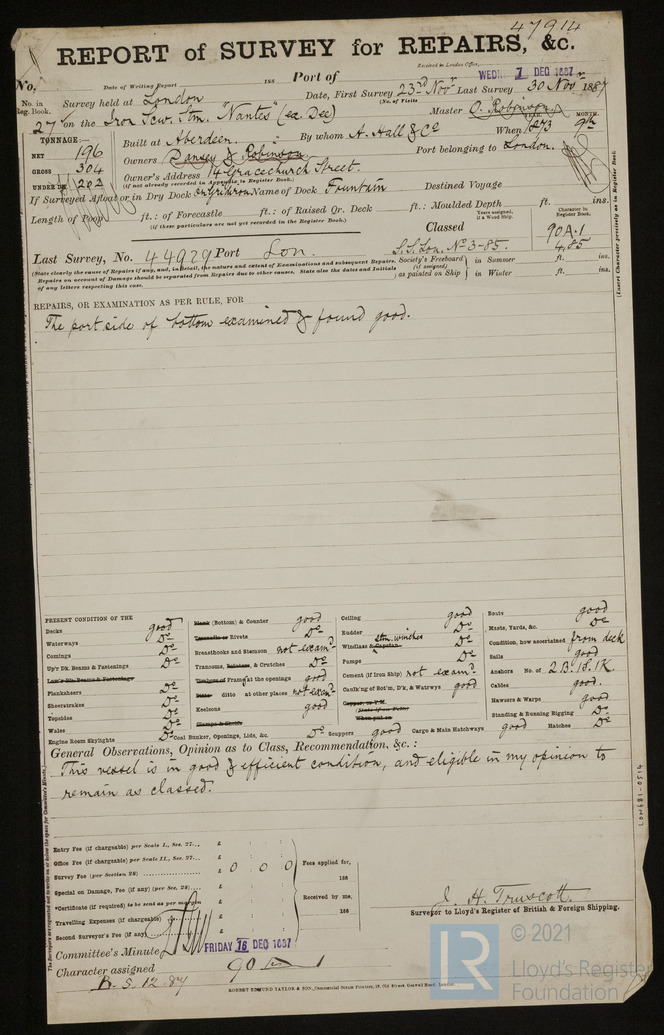 47914
REPORT of SURVEY for REPAIRS, &c.
Received in London Office,
WED. 7 DEC 1887
No.
Date of Writing Report 188 Port of
No. in Reg. Book.
Survey held at London Date, First Survey 23rd Novr Last Survey 30 Nov 1887
(No. of Visits
27 on the Iron Scw. Stm. "Nantes" (ex Dee) Master O. Robinson
TONNAGE:—
YEAR. MONTH.
NET 196
GROSS 304
UNDER DK 202
Built at Aberdeen. By whom A. Hall & Co When 1873 9th
Owners Dansey & Robinson Port belonging to London.
Owner's Address 14 Gracechurch Street.
(if not already recorded in Appendix to Register Book.)
If Surveyed Afloat or in Dry Dock on Gridiron Name of Dock Fountain Destined Voyage
Length of Poop ft.: of Forecastle ft.: of Raised Qr. Deck ft.: Moulded Depth ft. ins.
(if these particulars are not yet recorded in the Register Book.)
Years assigned, if a Wood Ship.
Character in Register Book.
Classed 90A.1
4,85
Last Survey, No. 44929 Port Lon. S.S. Lon. No 3-85.
(State clearly the cause of Repairs if any, and, in detail, the nature and extent of Examinations and subsequent Repairs.
Repairs on account of Damage should be separated from Repairs due to other causes. State also the dates and Initials
of any letters respecting this case.
Society's Freeboard (if assigned) as painted on Ship
in Summer ft. ins.
in Winter ft. ins.
(Insert Character precisely as in Register Book
REPAIRS, OR EXAMINATION AS PER RULE, FOR
The port side of bottom examined & found good.
PRESENT CONDITION OF THE
Decks good
Waterways Do
Comings Do
Up'r Dk. Beams & Fastenings Do
Low'r Dk. Beams & Fastenings
Planksheers Do
Sheerstrakes Do
Topsides Do
Wales Do
Engine Room Skylights Do
Plank (Bottom) & Counter good
Treenails or Rivets Do
Breasthooks and Stemson not examd
Transoms, Pointers, & Crutches Do
Timbers of Frames at the openings good
Ditto ditto at other places not examd
Keelsons good
Clamps & Shelfs
Coal Bunker, Openings, Lids, &c. Do
Ceiling good
Rudder Do
Windlass & Capstan stm. winches Do
Pumps Do
Cement (if Iron Ship) not examd
Caulk'ng of Bot'm, D'k, & Watrwys good
Copper, or Y.M.
(State if on Felt)
When put on
Scuppers good
Cargo & Main Hatchways good
Boats good
Masts, Yards, &c. Do
Condition, how ascertained from deck
Sails good
Anchors No. of 2B. 1S. 1K.
Cables good.
Hawsers & Warps good
Standing & Running Rigging Do
Hatches Do
General Observations, Opinion as to Class, Recommendation, &c. :
This vessel is in good & efficient condition, and eligible in my opinion to
remain as classed.
LON681-0514
Entry Fee (if chargeable) per Scale I., Sec. 27... £
Office Fee (if chargeable) per Scale II., Sec. 27... £
Survey Fee (per Section 28) £ 0 0 0
Special on Damage, Fee (if any) (per Sec. 28) £
*Certificate (if required) to be sent as per margin
Travelling Expenses (if chargeable) £
Second Surveyor's Fee (if any) £
Fees applied for,
188
Received by me,
188
J. H. Truscott.
Surveyor to Lloyd's Register of British & Foreign Shipping.
Committee's Minute FRIDAY 16 DEC 1887
Character assigned 90 A 1
B. S. 12.87
ROBERT EDMUND TAYLOR & SON, Commercial Steam Printers, 19, Old Street, Goswell Road, London.
LR
© 2021
Lloyd's Register
Foundation